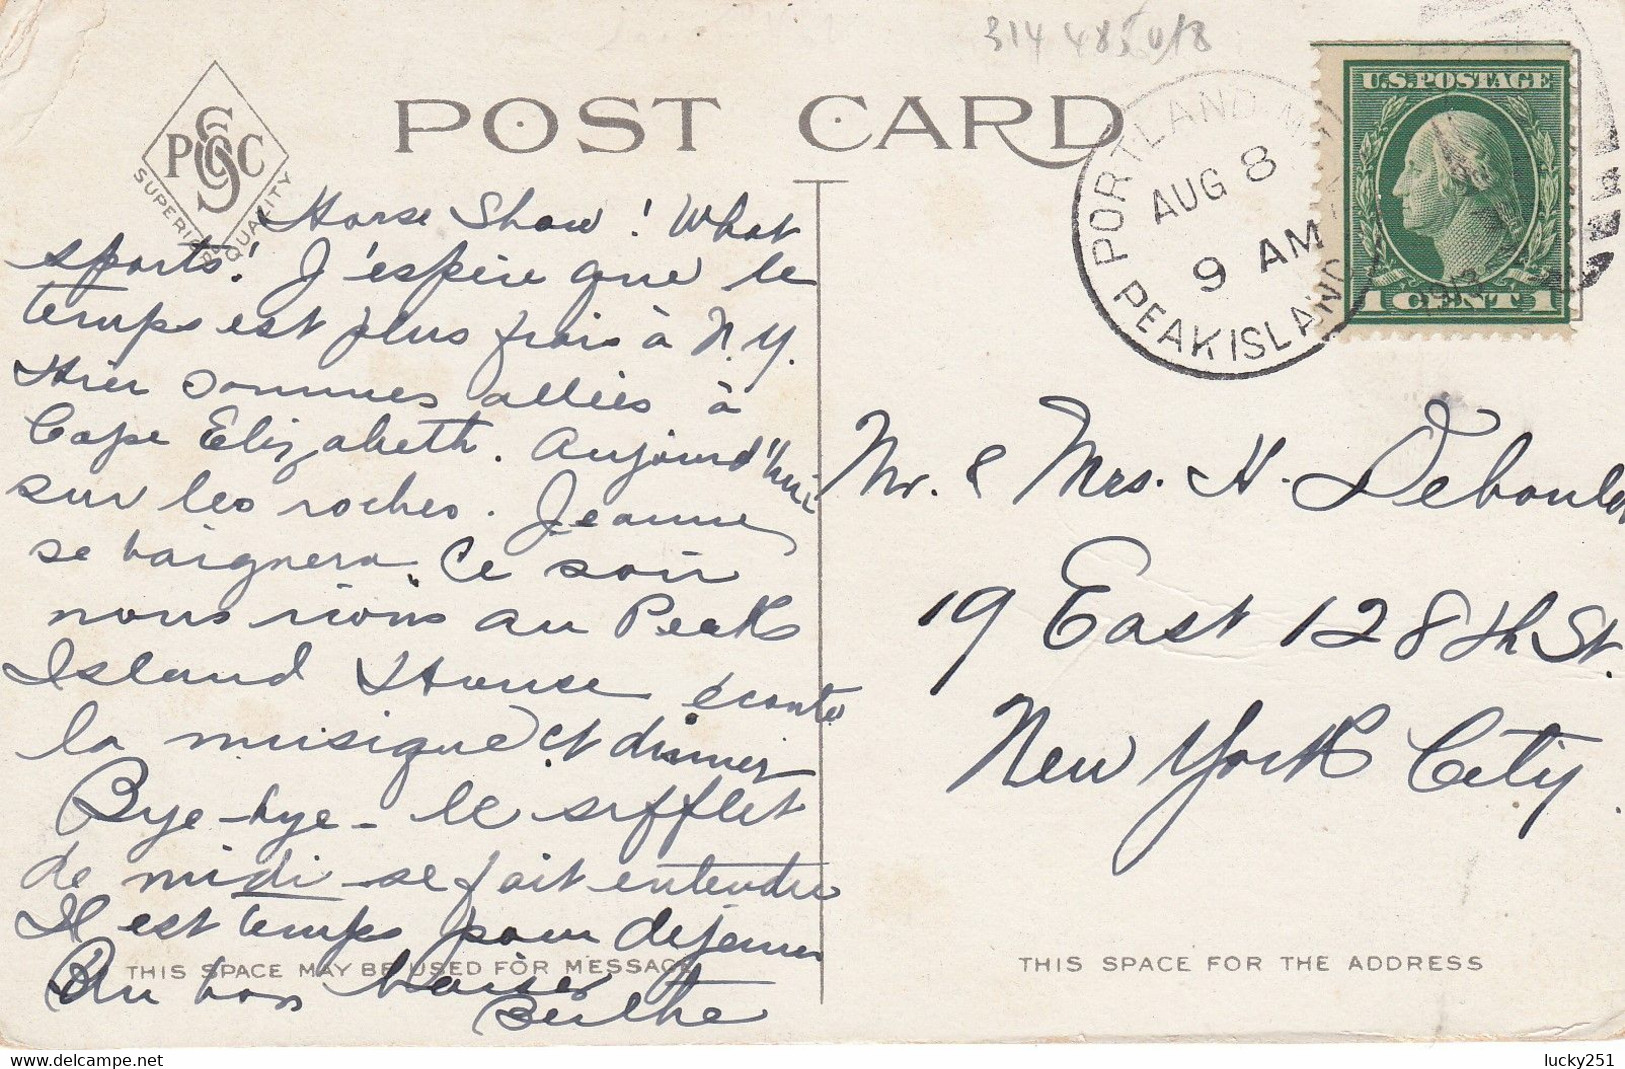 314 485 u/8
POST CARD
PSCC
SUPERIOR QUALITY
U.S. POSTAGE
1 CENT 1
PORTLAND, ME.
AUG 8
9 AM
PEAK ISLAND
Horse Show! What
sports! J'espère que le
temps est plus frais à N.Y.
Hier sommes allées à
Cape Elizabeth. Aujourd'hui
sur les roches. Jeanne
se baignera. Ce soir
nous irons au Peaks
Island House écouter
la musique et dinner
Bye-bye - le sifflet
de midi se fait entendre
Il est temps pour dejeuner
Un bon baiser
Berthe
THIS SPACE MAY BE USED FOR MESSAGE
Mr. & Mrs. H. Deboulo
19 East 128th St.
New York City.
THIS SPACE FOR THE ADDRESS
delcampe.net
lucky251